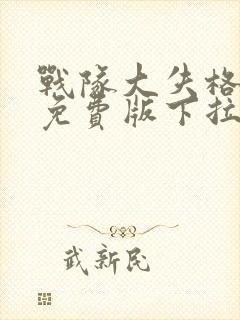 戰隊大失格
免費版下拉
武新民